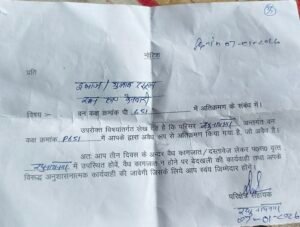 दिनांक 07-01-2026
नोटिस
प्रति
विषय :- वन कक्ष क्रमांक पी 651 में अतिक्रमण के संबंध में।
उपरोक्त विषयांतर्गत लेख है कि परिसर अन्तर्गत वन
कक्ष क्रमांक P651 में आपके द्वारा अवैध रूप से अतिक्रमण किया गया है, जो अवैध है।
अतः आप तीन दिवस के अन्दर वैध कागजात / दस्तावेज लेकर
में उपस्थित होवें, वैध कागजात न होने पर बेदखली की कार्यवाही तथा आपके
विरूद्ध अनुशासनात्मक कार्यवाही की जावेगी जिसके लिए आप स्वयं जिम्मेदार होंगे।
परिक्षेत्र सहायक
07-01-2026